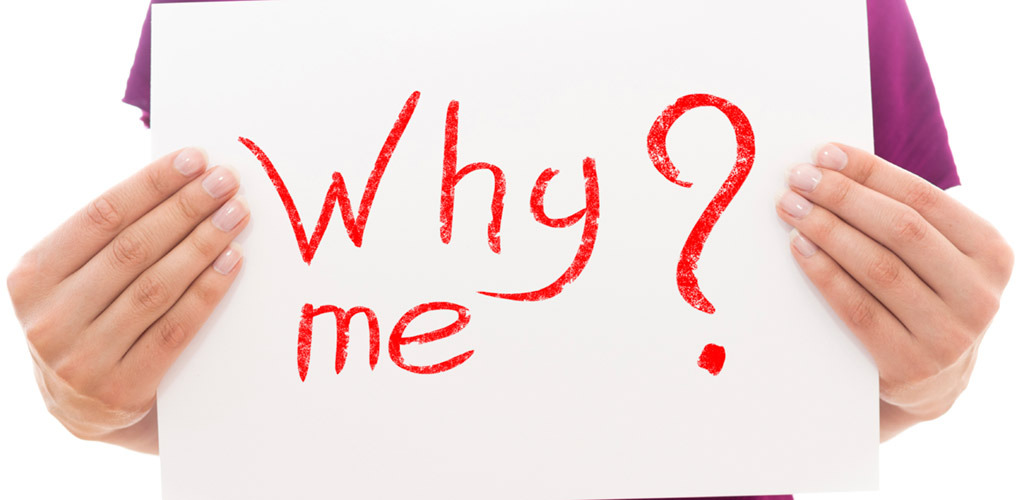 Why ?
me